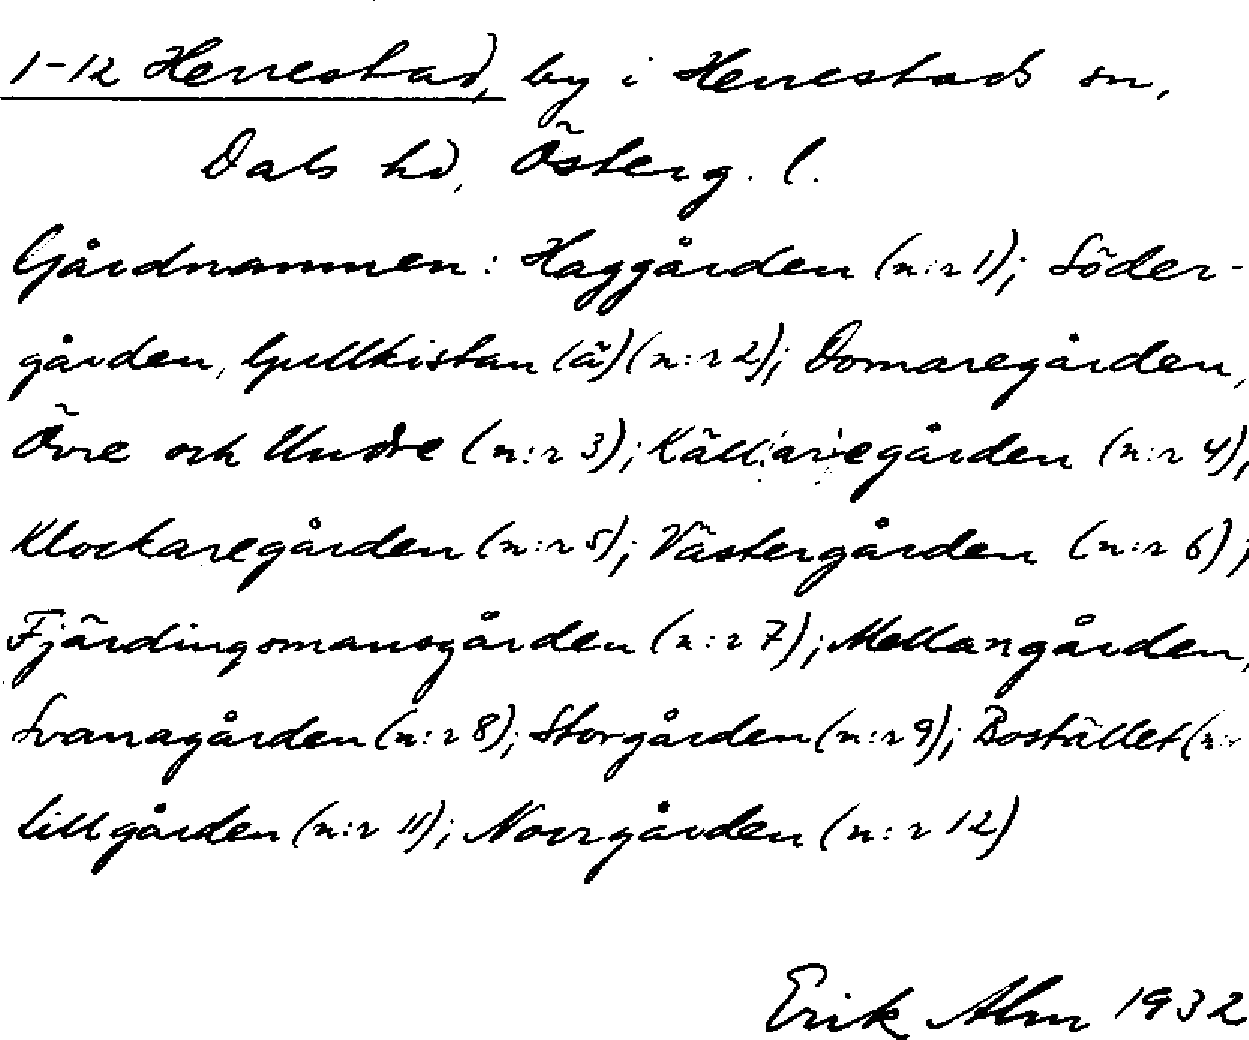 1-12 Herrestad, by i Herrestads sn,
Dals hd, Österg. l.
Gårdnamnen: Haggården (n:r 1); Söder-
gården, Gullkistan (ä) (n:r 2); Domaregården,
Övre och Undre (n:r 3); Källaregården (n:r 4);
Klockaregården (n:r 5); Västergården (n:r 6);
Fjärdingsmansgården (n:r 7); Mellangården,
Svanagården (n:r 8); Storgården (n:r 9); Bostället (n:r
Lillgården (n:r 11); Norrgården (n:r 12)
Erik Alm 1932